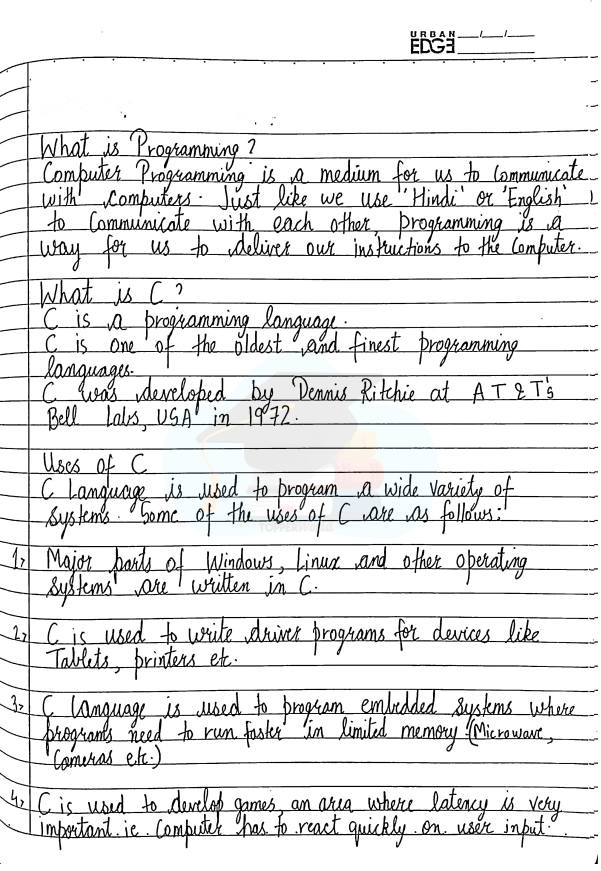 URBAN
EDGE
What is Programming?
Computer Programming is a medium for us to Communicate
with computers. Just like we use 'Hindi' or 'English'
to Communicate with each other, programming is a
way for us to deliver our instructions to the Computer.
What is C?
C is a programming language.
C is one of the oldest and finest programming
languages.
C was developed by Dennis Ritchie at AT&T's
Bell Labs, USA in 1972.
Uses of C
C Language is used to program a wide variety of
systems. Some of the uses of C are as follows:
1> Major parts of Windows, Linux and other operating
systems are written in C.
2> C is used to write driver programs for devices like
Tablets, printers etc.
3> C language is used to program embedded systems where
programs need to run faster in limited memory (Microwave,
Cameras etc.)
4> C is used to develop games, an area where latency is very
important. ie. Computer has to react quickly on user input.